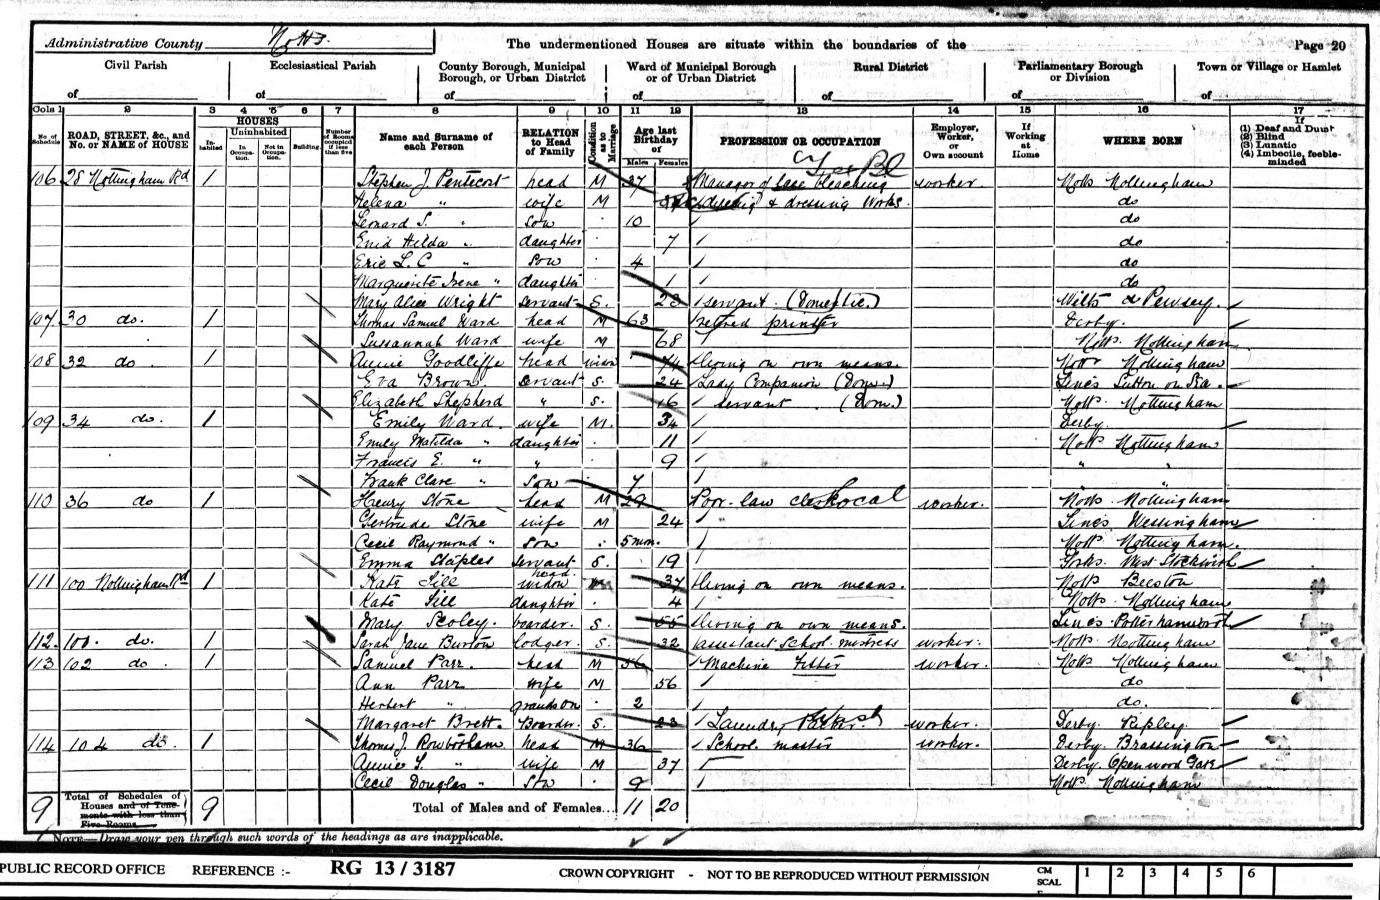 Administrative County Notts. The undermentioned Houses are situate within the boundaries of the Page 20
Civil Parish Ecclesiastical Parish County Borough, Municipal Borough, or Urban District Ward of Municipal Borough or of Urban District Rural District Parliamentary Borough or Division Town or Village or Hamlet
of of of of of of of
Cols 1 2 3 4 5 6 7 8 9 10 11 12 13 14 15 16 17
No. of Schedule ROAD, STREET, &c., and No. or NAME of HOUSE HOUSES Inhabited Uninhabited In Occupation. Not in Occupation. Building. Number of Rooms occupied if less than five Name and Surname of each Person RELATION to Head of Family Condition as to Marriage Age last Birthday of Males Females PROFESSION OR OCCUPATION Employer, Worker, or Own account If Working at Home WHERE BORN If (1) Deaf and Dumb (2) Blind (3) Lunatic (4) Imbecile, feeble-minded
106 28 Nottingham Rd 1 Stephen J. Pentecost head M 37 Manager of lace bleaching worker. Notts Nottingham
Helena " wife M & dressing Works. do
Leonard S. " Son 10 do
Enid Hilda " daughter 7 do
Eric L. C " Son 4 do
Marguerite Irene " daughter 1 do
Mary Alice Wright Servant S. 23 servant. (Domestic.) Wilts Pewsey.
107 30 do. 1 Thomas Samuel Ward head M 63 retired printer Derby.
Sussannah Ward wife M 68 Notts. Nottingham
108 32 do 1 Annie Goodliffe head widow 74 living on own means. Notts Nottingham
Eva Brown Servant S. 24 Lady Companion (Dom) Lincs Sutton on Sea.
Elizabeth Shepherd " S. 16 servant (Dom.) Notts Nottingham
109 34 do. 1 Emily Ward. wife M. 34 Derby.
Emily Matilda " daughter 11 Notts Nottingham
Francis E. " " 9 " "
Frank Clare " Son 7 "
110 36 do 1 Henry Stone head M 29 Poor-law clerk Local worker. Notts Nottingham
Gertrude Stone wife M 24 Lincs Wellingham
Cecil Raymond " Son 5 mon. Notts Nottingham.
Emma Staples Servant S. 19 Yorks. West Stockwith
111 100 Nottingham Rd 1 Kate Sill head widow 37 living on own means. Notts Beeston
Kate Sill daughter 4 Notts Nottingham
Mary Scoley. boarder. S. 55 living on own means. Lincs Potterhanworth
112. 100. do. 1 Sarah Jane Burton lodger S. 32 assistant School-mistress worker. Notts Nottingham
113 102 do 1 Samuel Parr. head M 56 Machine Fitter worker. Notts Nottingham
Ann Parr wife M 56 do
Herbert " grandson 2 do.
Margaret Brett. Boarder. S. 23 Laundry worker. Derby. Ripley.
114 104 do. 1 Thomas J. Rowbotham head M 36 School master worker. Derby. Brassington
Annie S. " wife M 37 Derby. Openwood Gate
Cecil Douglas " Son 9 Notts Nottingham
9 Total of Schedules of Houses and of Tenements with less than Five Rooms 9 Total of Males and of Females... 11 20
NOTE—Draw your pen through such words of the headings as are inapplicable.
PUBLIC RECORD OFFICE REFERENCE :- RG 13/3187 CROWN COPYRIGHT - NOT TO BE REPRODUCED WITHOUT PERMISSION CM SCALE 1 2 3 4 5 6